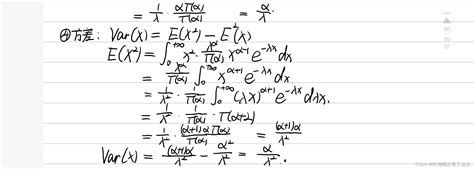 = 1/λ · αΓ(α)/Γ(α) = α/λ.
④方差: Var(X) = E(X²) - E²(X)
E(X²) = ∫₀^{+∞} x² · λ^α/Γ(α) x^{α-1} e^{-λx} dx
= λ^α/Γ(α) ∫₀^{+∞} x^{α+1} e^{-λx} dx
= 1/λ² · 1/Γ(α) ∫₀^{+∞} (λx)^{α+1} e^{-λx} dλx.
= 1/λ² · 1/Γ(α) · Γ(α+2)
= 1/λ² · (α+1)αΓ(α)/Γ(α) = (α+1)α/λ²
Var(X) = (α+1)α/λ² - α²/λ² = α/λ².